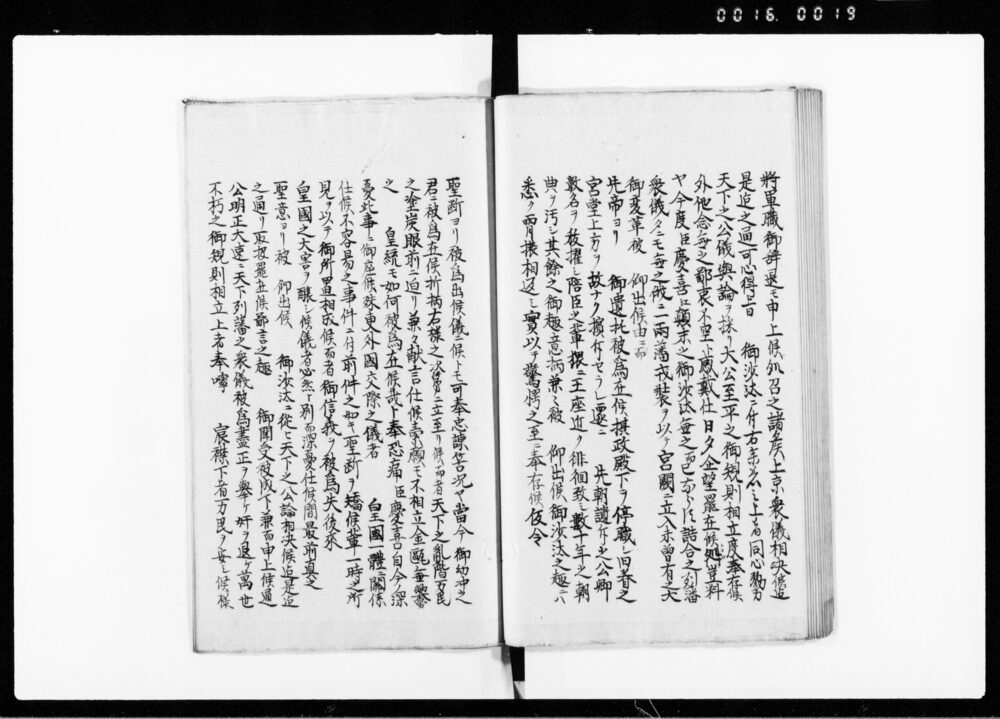 0016. 0019
將軍職御辞退モ申上候処召之諸侯上京衆儀相决候迄
是迄之通可心得旨 御沙汰ニ付右参着之上者同心勠力
天下之公儀輿論ヲ採リ大公至平之御規則相立度奉存候
外他念無之鄙衷不空ト感戴仕日夕企望罷在候処豈料
ヤ今度臣慶喜江顛末之御沙汰無之而已ナラス詰合之列藩
衆儀タニモ無之俄ニ一両藩戎装ヲ以テ宮闕ニ立入未曾有之大
御変革被 仰出候由ニ而
先帝ヨリ 御遺托被為在候摂政殿下ヲ停職シ旧眷之
宮堂上方ヲ故ナク擯斥セラレ遽ニ 先朝譴斥之公卿
數名ヲ抜擢シ陪臣之輩猥ニ王座近ク徘徊致シ數千年之朝
典ヲ汚シ其餘之御趣意柄兼々被 仰出候御沙汰之趣トハ
悉ク両様相返シ實以テ驚愕之至ニ奉存候仮令
聖断ヨリ被為出候儀ニ候トモ可奉忠諫筈况ヤ當今御幼冲之
君ニ被為在候折柄右様之次第ニ立至リ候而者天下之亂階万民
之塗炭眼前ニ迫リ兼々献言仕候素願モ不相立金甌無缺
之 皇統モ如何被為在候哉ト奉恐痛臣慶喜自今之深
憂此事ニ御座候殊更外國交際之儀者 皇國一體ニ関係
仕候不容易之事件ニ付前件之如キ聖断ヲ矯候輩一時之所
見ヲ以テ御所置相成候而者御信義ヲ被為失後来
皇國之大害ヲ醸シ候儀者必然ト別而深憂仕候間最前真之
聖意ヨリ被 仰出候 御沙汰ニ從ヒ天下之公論相决候迄是迄
之通リ取扱罷在候鄙言之趣 御聞受被成下兼而申上候通
公明正大速ニ天下列藩之衆儀被為盡正ヲ舉ケ奸ヲ退ケ萬世
不朽之御規則相立上者奉寧 宸襟下者万民ヲ安シ候様